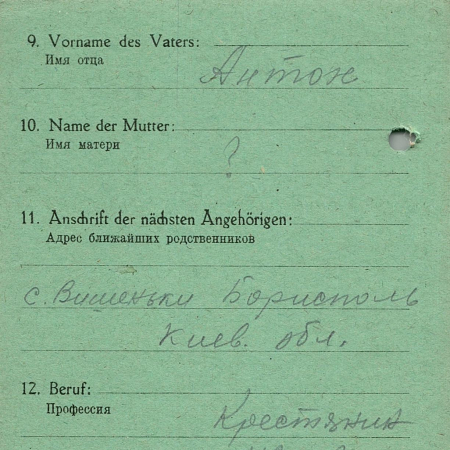 9. Vorname des Vaters:
Имя отца
Антон
10. Name der Mutter:
Имя матери
?
11. Anschrift der nächsten Angehörigen:
Адрес ближайших родственников
с. Вишеньки Борисполь
Киев. обл.
12. Beruf:
Профессия
Крестянин